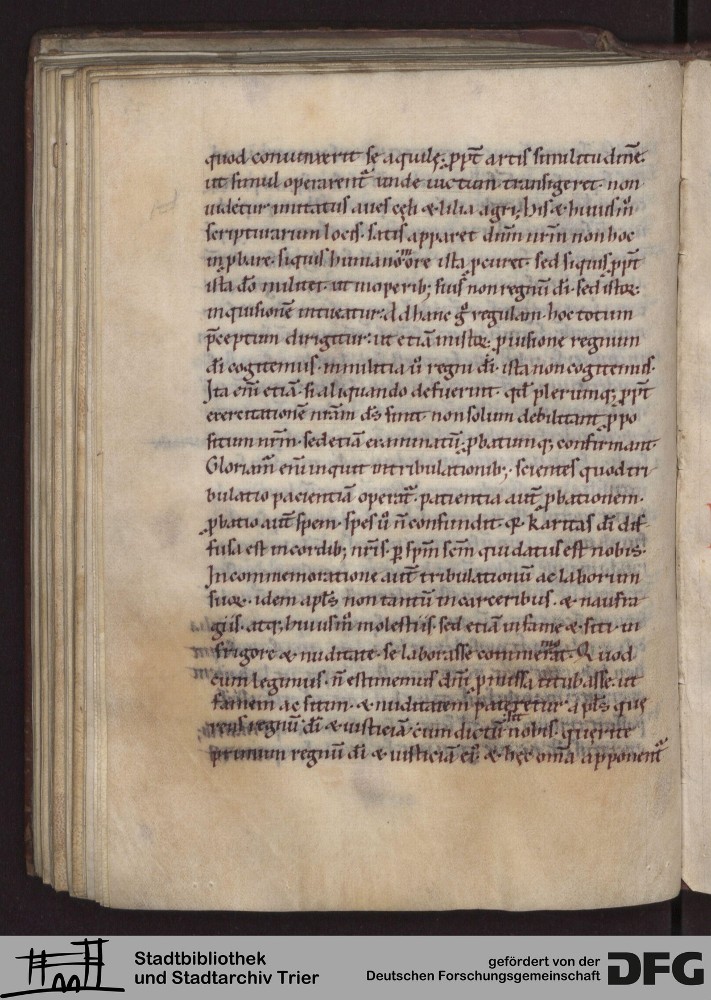 quod conuinxerit se aquilę. ꝓpt̄ artis similitudinē.
ut simul operarent̄ unde uictum transigeret. non
uidetur imitatus aues cęli & lilia agri. his & huius m̄
scripturarum locis. satis apparet dn̄m nr̄m non hoc
inꝓbare. si quis humano more ista ꝓcuret. sed si quis ꝓpt̄
ista dō militet. ut in operib; suis non regnū dī. sed istoꝝ
inquisionē intueatur. Ad hanc g̊ regulam. hoc totum
p̄ceptum dirigitur. ut etiā in istoꝝ ꝓuisione regnum
dī cogitemus. in militia ů regni dī. ista non cogitemus.
Ita enī etiā si aliquando defuerint. qđ plerunq; ꝓpt̄
exercitationē nr̄am ds̄ sinit. non solum debilitant ꝓpo
situm nr̄m. sed etiā examinatū. ꝓbatumq; confirmant.
Gloriam̄ enī inquit in tribulationib;. scientes quod tri
bulatio pacientiā operat̄. patientia aut̄ ꝓbationem.
ꝓbatio aut̄ spem. spes ů n̄ confundit. q̇ karitas dī dif
fusa est in cordib; nr̄is. ꝑ sp̄m sc̄m qui datus est nobis.
In commemoratione aut̄ tribulationū ac laborum
suoꝝ. idem apl̄s non tantū in carceribus. & naufra
giis. atq; huius m̄ molestiis. sed etiā in fame & siti. in
frigore & nuditate. se laborasse com̄emorat. Quod
cum legimus. n̄ estimemus dn̄i ꝓmissa titubasse. ut
famem ac sitim. & nuditatem pateretur apl̄s quę
rens regnū dī & iusticiā. cum dictū sit nobis. querite
primum regnū dī & iusticiā ei᷒. & hęc om̄a apponent᷑
Stadtbibliothek
und Stadtarchiv Trier
gefördert von der
Deutschen Forschungsgemeinschaft
DFG